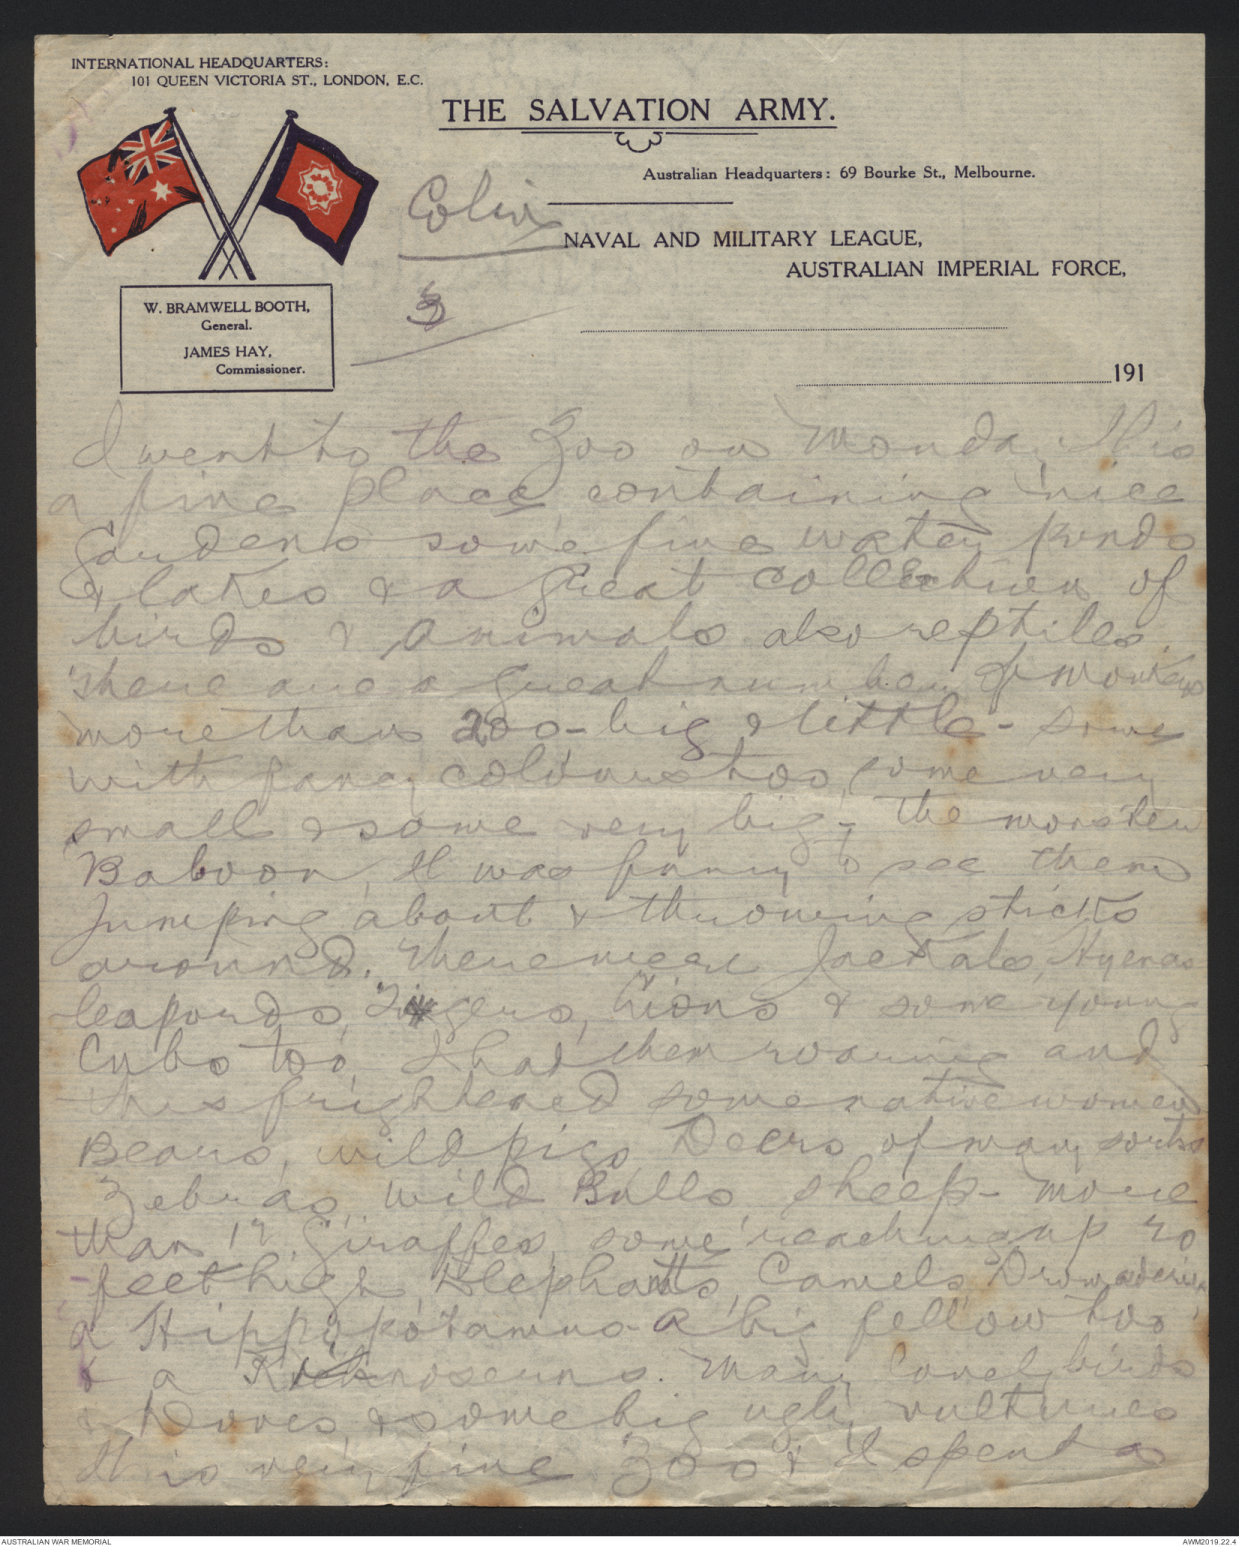 INTERNATIONAL HEADQUARTERS:
101 QUEEN VICTORIA ST., LONDON, E.C.
THE SALVATION ARMY.
Australian Headquarters: 69 Bourke St., Melbourne.
Colin
NAVAL AND MILITARY LEAGUE,
AUSTRALIAN IMPERIAL FORCE,
W. BRAMWELL BOOTH,
General.
JAMES HAY,
Commissioner.
3
191
I went to the Zoo on Monday, It is
a fine place, containing nice
Gardens some fine water ponds
& lakes & a great collection of
birds & animals also reptiles.
There are a great number of monkeys
more than 200 - big & little - some
with fancy colours too, some very
small & some very big - the monster
Baboon, It was funny to see them
Jumping about & throwing sticks
around. There were Jackals, Hyenas
leapords, Tigers, Lions & some young
Cubs too, I had them roaring and
this frightened some native women
Bears, wild pigs, Deers of many sorts
Zebras, wild Bulls, sheep - more
than 12 Giraffes, some reaching up 20
feet high, Elephants, Camels, Dromaderies,
a Hippopotamus - a big fellow too,
& a Richnoseurs. Many lovely birds
& Doves, & some big ugly vultures
It is very fine Zoo & I spent a
AUSTRALIAN WAR MEMORIAL
AWM2019.22.4